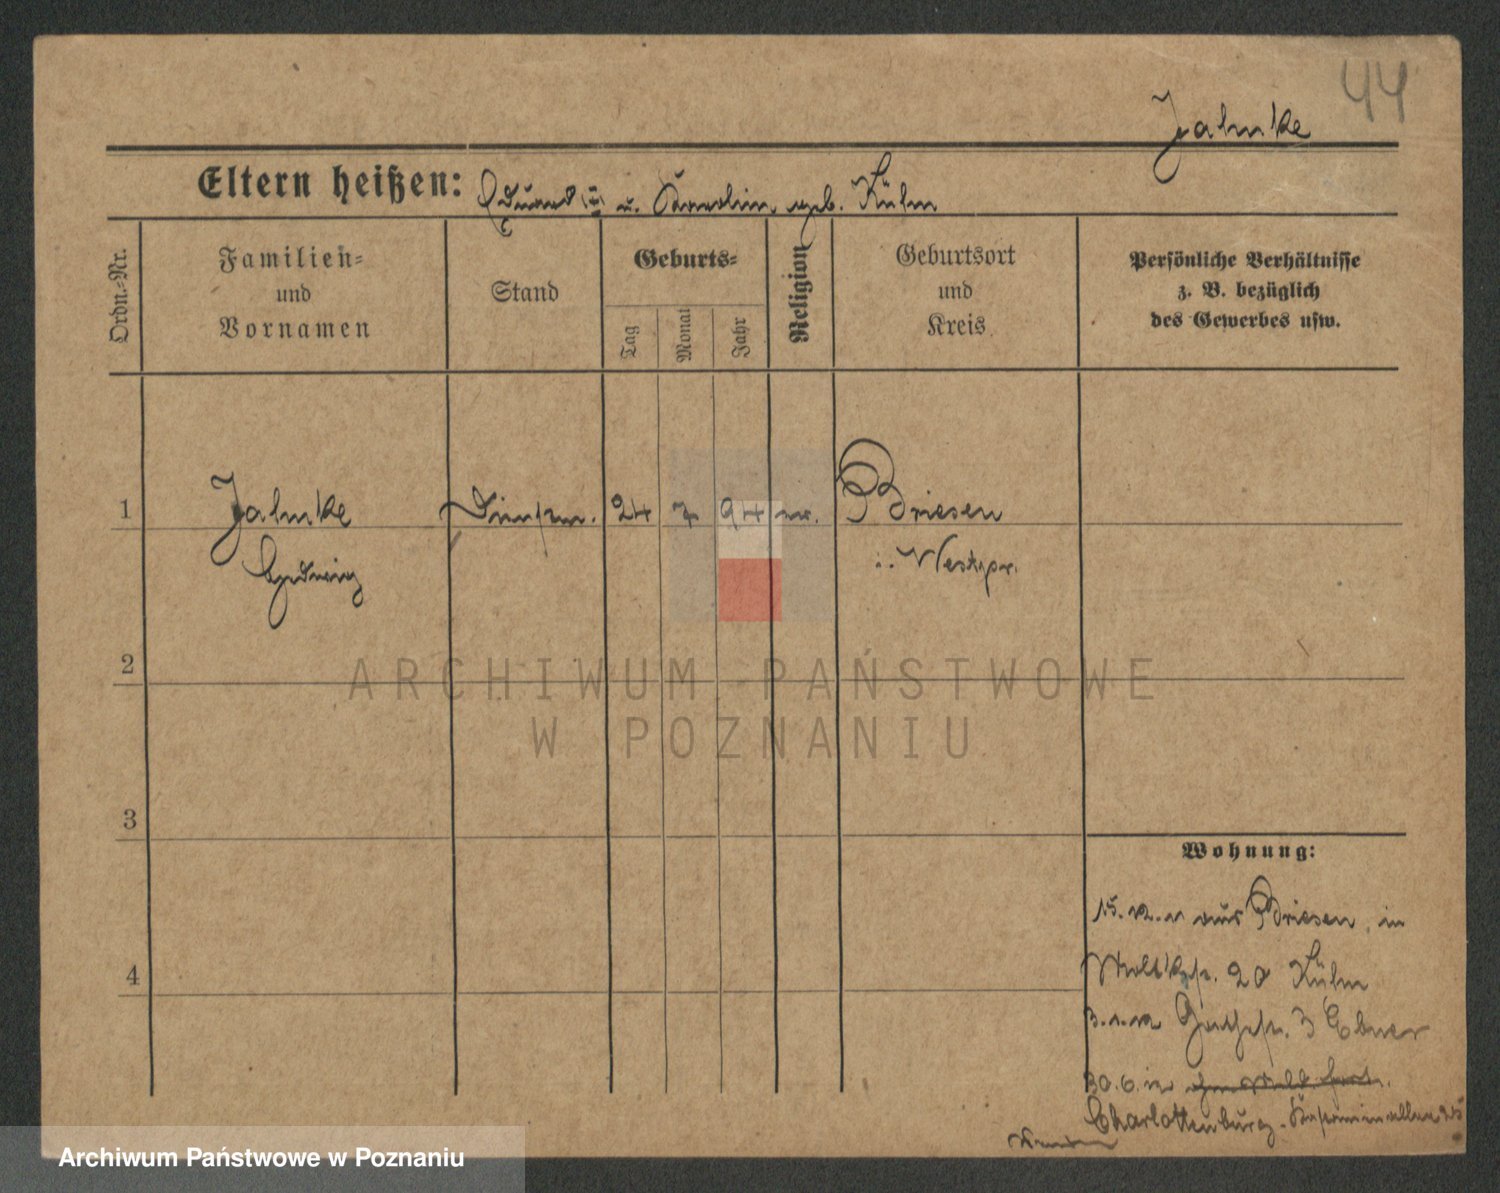 44
Jahnke
Eltern heißen: Eduard (†) u. Karolin geb. Kühn
Ordn.-Nr.
Familien-
und
Vornamen
Stand
Geburts-
Tag
Monat
Jahr
Religion
Geburtsort
und
Kreis
Persönliche Verhältnisse
z. B. bezüglich
des Gewerbes usw.
1 Jahnke Dienstm. 24 7 94 ev. Briesen
Hedwig i. Westpr.
2
3
4
Wohnung:
15. 12. 11 aus Briesen, in
Moltkestr. 20 Kühn
3. 1. 12 Goethestr. 3 Ebner
30. 6. 12
Charlottenburg
ARCHIWUM PAŃSTWOWE
W POZNANIU
Archiwum Państwowe w Poznaniu